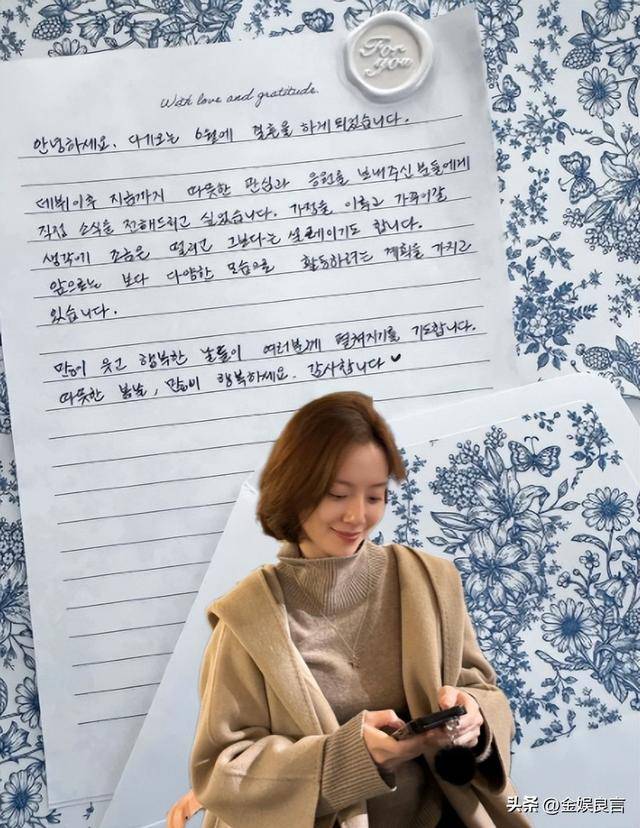 For you
With love and gratitude.
안녕하세요. 다가오는 6월에 결혼을 하게 되었습니다.
데뷔이후 지금까지 따뜻한 관심과 응원을 보내주신 분들에게
직접 소식을 전해드리고 싶었습니다. 가정을 이루고 가꾸어갈
생각에 조금은 떨리고 그보다는 설레이기도 합니다.
앞으로는 보다 다양한 모습으로 활동하려는 계획을 가지고
있습니다.
많이 웃고 행복한 날들이 여러분께 펼쳐지기를 기도합니다.
따뜻한 봄날, 많이 행복하세요. 감사합니다 ♥
头条 @金娱良言